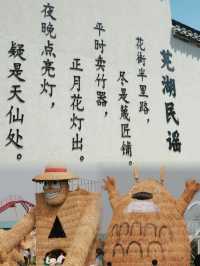 芜湖民谣
花街半里路，
尽是篾匠铺。
平时卖竹器，
正月花灯出。
夜晚点亮灯，
疑是天仙处。